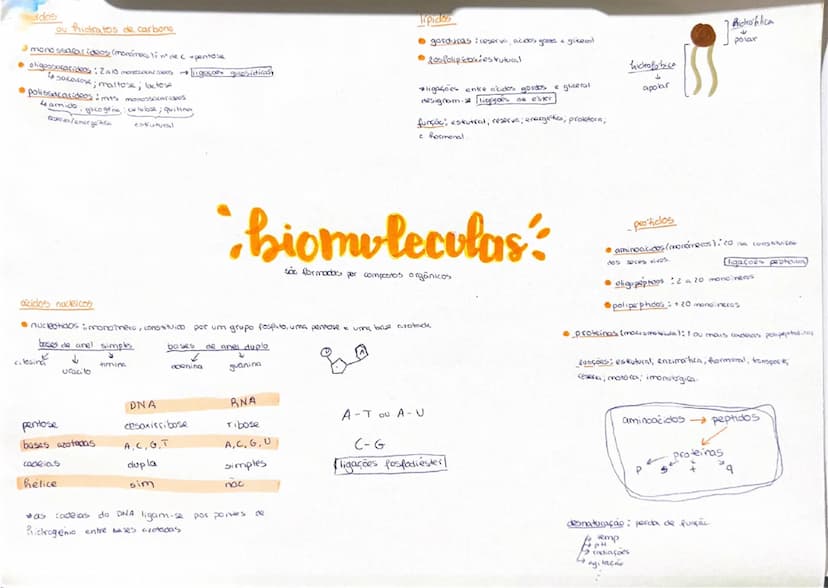 ou hidratos de carbono
monossacarídeos (monómeros): nº de C → pentose
oligossacarídeos: 2 a 10 monossacarídeos → ligações glicosídicas
↳ sacarose; maltose; lactose
polissacarídeos: mts monossacarídeos
↳ amido, glicogénio; celulose; quitina
reserva/energética estrutural
lípidos
gorduras: reserva, ácidos gordos e glicerol
fosfolípidos: estrutural
*ligações entre ácidos gordos e glicerol
designam-se ligações de ester
função: estrutural, reserva, energética, protetora,
e hormonal.
hidrofílica
↓
polar
hidrofóbica
↓
apolar
biomoleculas
são formadas por compostos orgânicos
protidos
aminoácidos (monómeros): 20 na constituição
dos seres vivos. ligações peptídicas
oligopéptidos: 2 a 20 monómeros
polipéptidos: +20 monómeros
proteínas (macromolécula): 1 ou mais cadeias polipeptídicas
funções: estrutural, enzimática, hormonal, transporte,
reserva, motora, imunológica.
aminoácidos → peptidos
proteínas
P S T Q
desnaturação: perda de função
temp
pH
radiações
agitação
ácidos nucleicos
nucleótidos: monómero, constituído por um grupo fosfato, uma pentose e uma base azotada
bases de anel simples bases de anel duplo
citosina uracilo timina adenina guanina
DNA RNA
pentose desoxirribose ribose
bases azotadas A, C, G, T A, C, G, U
cadeias dupla simples
hélice sim não
*as cadeias do DNA ligam-se por pontes de
hidrogénio entre bases azotadas
A-T ou A-U
C-G
ligações fosfodiéster